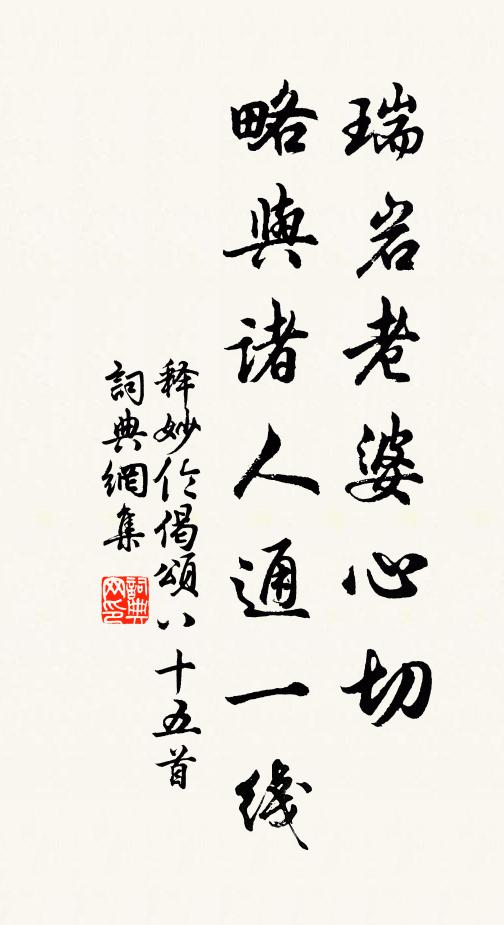 瑞岩老婆心切
略與诸人通一綫
释妙伦偈頌八十五首
詞典網集
詞典網印